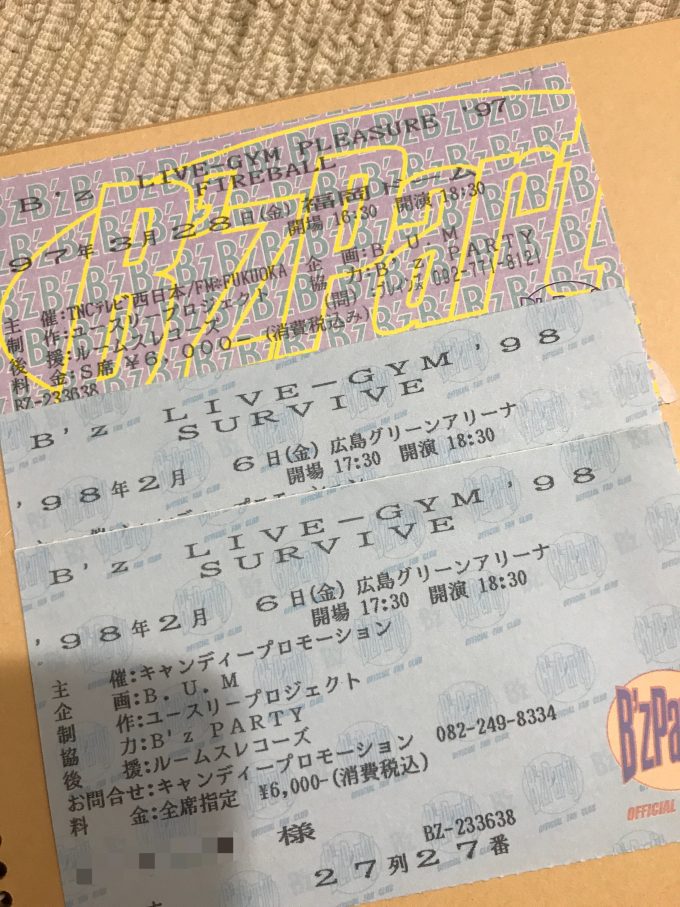 B'z LIVE-GYM PLEASURE '97
FIREBALL
97年3月28日(金) 福岡ドーム
開場 16:30 開演 18:30
主 催:TNCテレビ西日本/FM FUKUOKA 企 画:B.U.M
制 作:ユースリープロジェクト 協 力:B'z PARTY
後 援:ルームスレコーズ (問) 092-771-8121
料 金:S席 ¥6,000-(消費税込み)
BZ-233638
B'z Part
B'z LIVE-GYM '98
SURVIVE
'98年2月 6日(金) 広島グリーンアリーナ
開場 17:30 開演 18:30
B'z LIVE-GYM '98
SURVIVE
'98年2月 6日(金) 広島グリーンアリーナ
開場 17:30 開演 18:30
主 催:キャンディープロモーション
企 画:B.U.M
制 作:ユースリープロジェクト
協 力:B'z PARTY
後 援:ルームスレコーズ
お問合せ:キャンディープロモーション 082-249-8334
料 金:全席指定 ¥6,000-(消費税込)
様 BZ-233638
27列27番
B'zPa
OFFICIAL